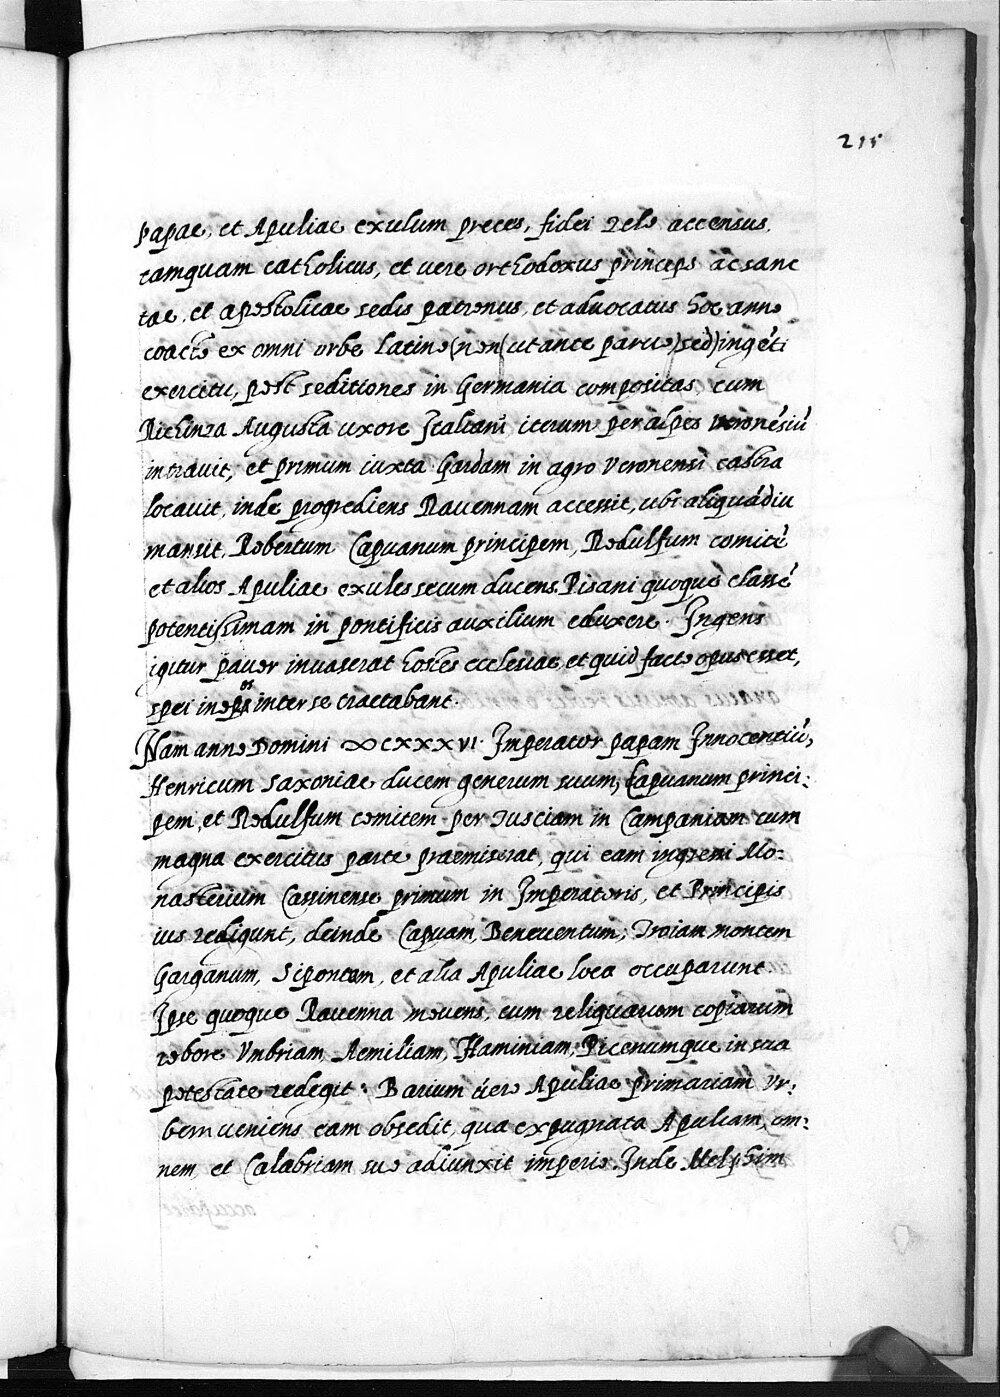 215
papae, et Apuliae exulum preces, fidei zelo accensus,
tamquam catholicus, et vere orthodoxus princeps ac sanc
tae, et apostolicae sedis patronus, et advocatus hoc anno
coacto ex omni orbe latino (non (ut ante parvo) sed) ingēti
exercitu, post seditiones in Germania compositas, cum
Richinza Augusta uxore Italiam iterum per alpes veronēsiū
intravit, et primum iuxta Gardam in agro Veronensi castra
locavit, inde progrediens Ravennam accessit, ubi aliquādiu
mansit, Robertum Capuanum principem, Rodulfum comitē
et alios Apuliae exules secum ducens. Pisani quoque classē
potentissimam in pontificis auxilium eduxere. Ingens
igitur pavor invaserat hostes ecclesiae, et quid facto opus esset,
spei inopes inter se tractabant.
Nam anno Domini ∞CXXXVI. Imperator papam Innocentiū,
Henricum Saxoniae ducem generum suum, Capuanum princi:
pem, et Rodulfum comitem per Tusciam in Campaniam cum
magna exercitus parte praemiserat, qui eam ingressi Mo:
nasterium Cassinense primum in Imperatoris, et Principis
ius redigunt, deinde Capuam, Beneventum, Troiam montem
Garganum, Sipontem, et alia Apuliae loca occuparunt
Ipse quoque Ravenna movens, cum reliquarum copiarum
robore Vmbriam Aemiliam, Flaminiam, Picenumque in sua
potestate redegit: Barium vero Apuliae primariam Vr:
bem veniens eam obsedit, qua expugnata Apuliam, om:
nem, et Calabriam suo adiunxit imperio. Inde Melphim